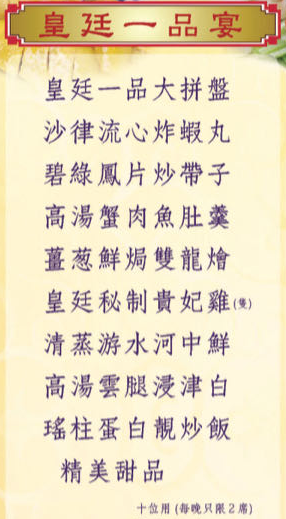 皇廷一品宴
皇廷一品大拼盤
沙律流心炸蝦丸
碧綠鳳片炒帶子
高湯蟹肉魚肚羹
薑葱鮮焗雙龍燴
皇廷秘制貴妃雞(隻)
清蒸游水河中鮮
高湯雲腿浸津白
瑤柱蛋白靚炒飯
精美甜品
十位用 (每晚只限2席)